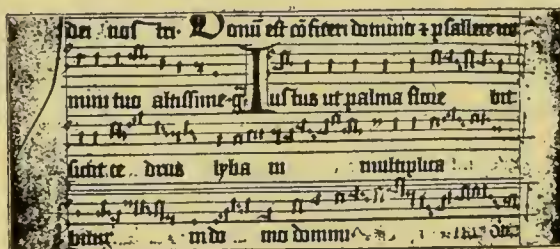 dei nos tri. Bonū est cōfiteri domino ⁊ psallere no
mini tuo altissime. Ius tus ut palma flore bit
sicut ce drus lyba ni multiplica
bitur in do mo domini